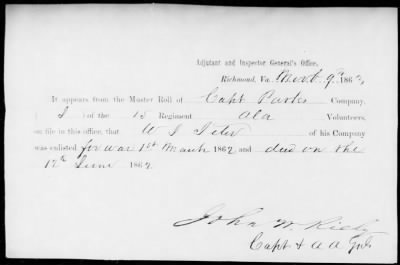 Adjutant and Inspector General's Office,
Richmond, Va. 9th 186
It appears from the Muster Roll of Capt Parks Company,
of the 15 Regiment Ala Volunteers,
on file in this office, that W. J. of his Company
was enlisted for war 1st March 1862 and died on the
12th June 1862.
John W. Riely
Capt & A A Genl